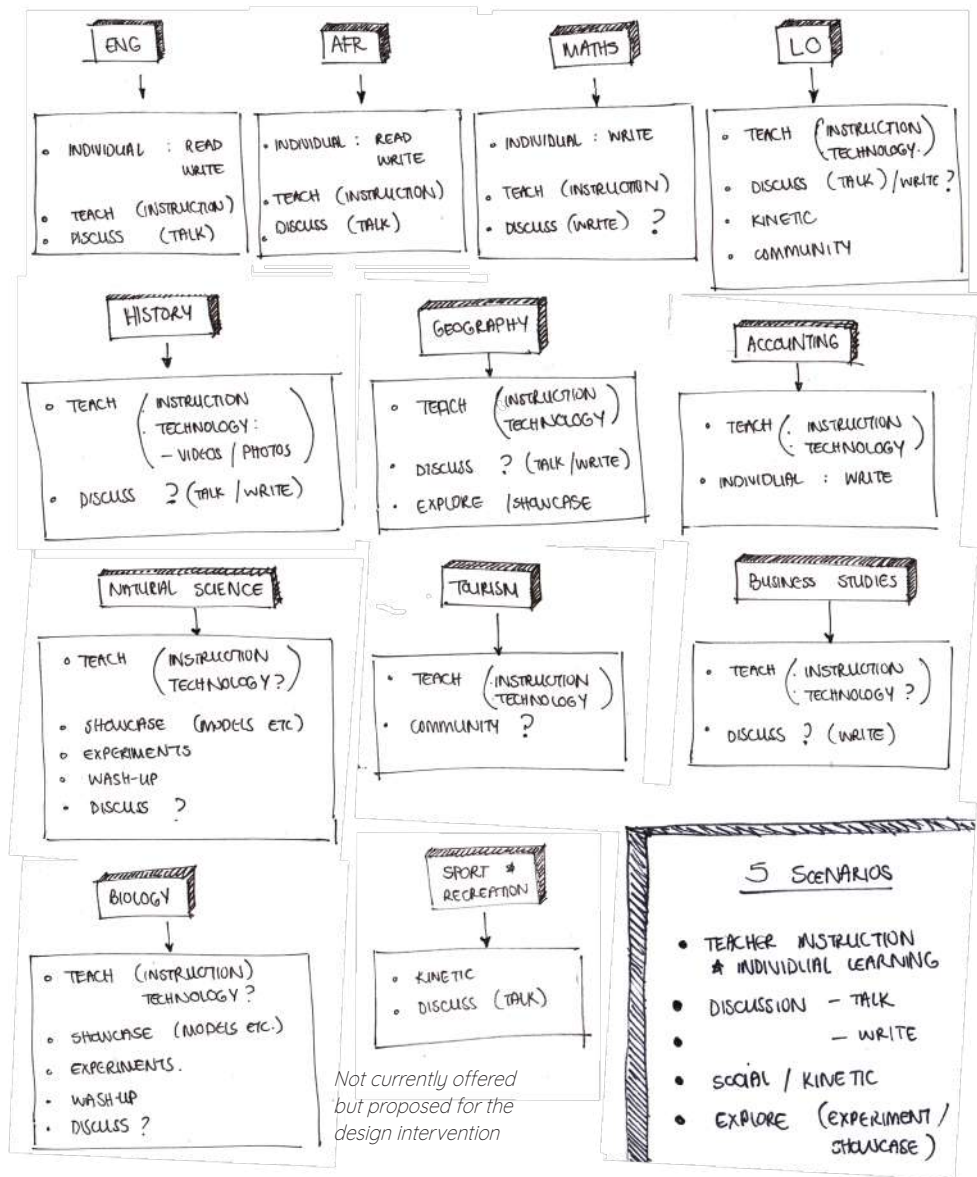 ENG
INDIVIDUAL : READ
WRITE
TEACH (INSTRUCTION)
DISCUSS (TALK)
AFR
INDIVIDUAL : READ
WRITE
TEACH (INSTRUCTION)
DISCUSS (TALK)
MATHS
INDIVIDUAL : WRITE
TEACH (INSTRUCTION)
DISCUSS (WRITE) ?
LO
TEACH (INSTRUCTION
TECHNOLOGY.)
DISCUSS (TALK) / WRITE ?
KINETIC
COMMUNITY
HISTORY
TEACH (INSTRUCTION
TECHNOLOGY :
– VIDEOS / PHOTOS)
DISCUSS ? (TALK / WRITE)
GEOGRAPHY
TEACH (INSTRUCTION
TECHNOLOGY)
DISCUSS ? (TALK / WRITE)
EXPLORE / SHOWCASE
ACCOUNTING
TEACH (. INSTRUCTION
. TECHNOLOGY)
INDIVIDUAL : WRITE
NATURAL SCIENCE
TEACH (INSTRUCTION
TECHNOLOGY ?)
SHOWCASE (MODELS ETC)
EXPERIMENTS
WASH-UP
DISCUSS ?
TOURISM
TEACH (. INSTRUCTION
. TECHNOLOGY)
COMMUNITY ?
BUSINESS STUDIES
TEACH (. INSTRUCTION
. TECHNOLOGY ?)
DISCUSS ? (WRITE)
BIOLOGY
TEACH (INSTRUCTION)
TECHNOLOGY ?
SHOWCASE (MODELS ETC.)
EXPERIMENTS.
WASH-UP
DISCUSS ?
SPORT &
RECREATION
KINETIC
DISCUSS (TALK)
Not currently offered
but proposed for the
design intervention
5 SCENARIOS
TEACHER INSTRUCTION
& INDIVIDUAL LEARNING
DISCUSSION – TALK
– WRITE
SOCIAL / KINETIC
EXPLORE (EXPERIMENT /
SHOWCASE)